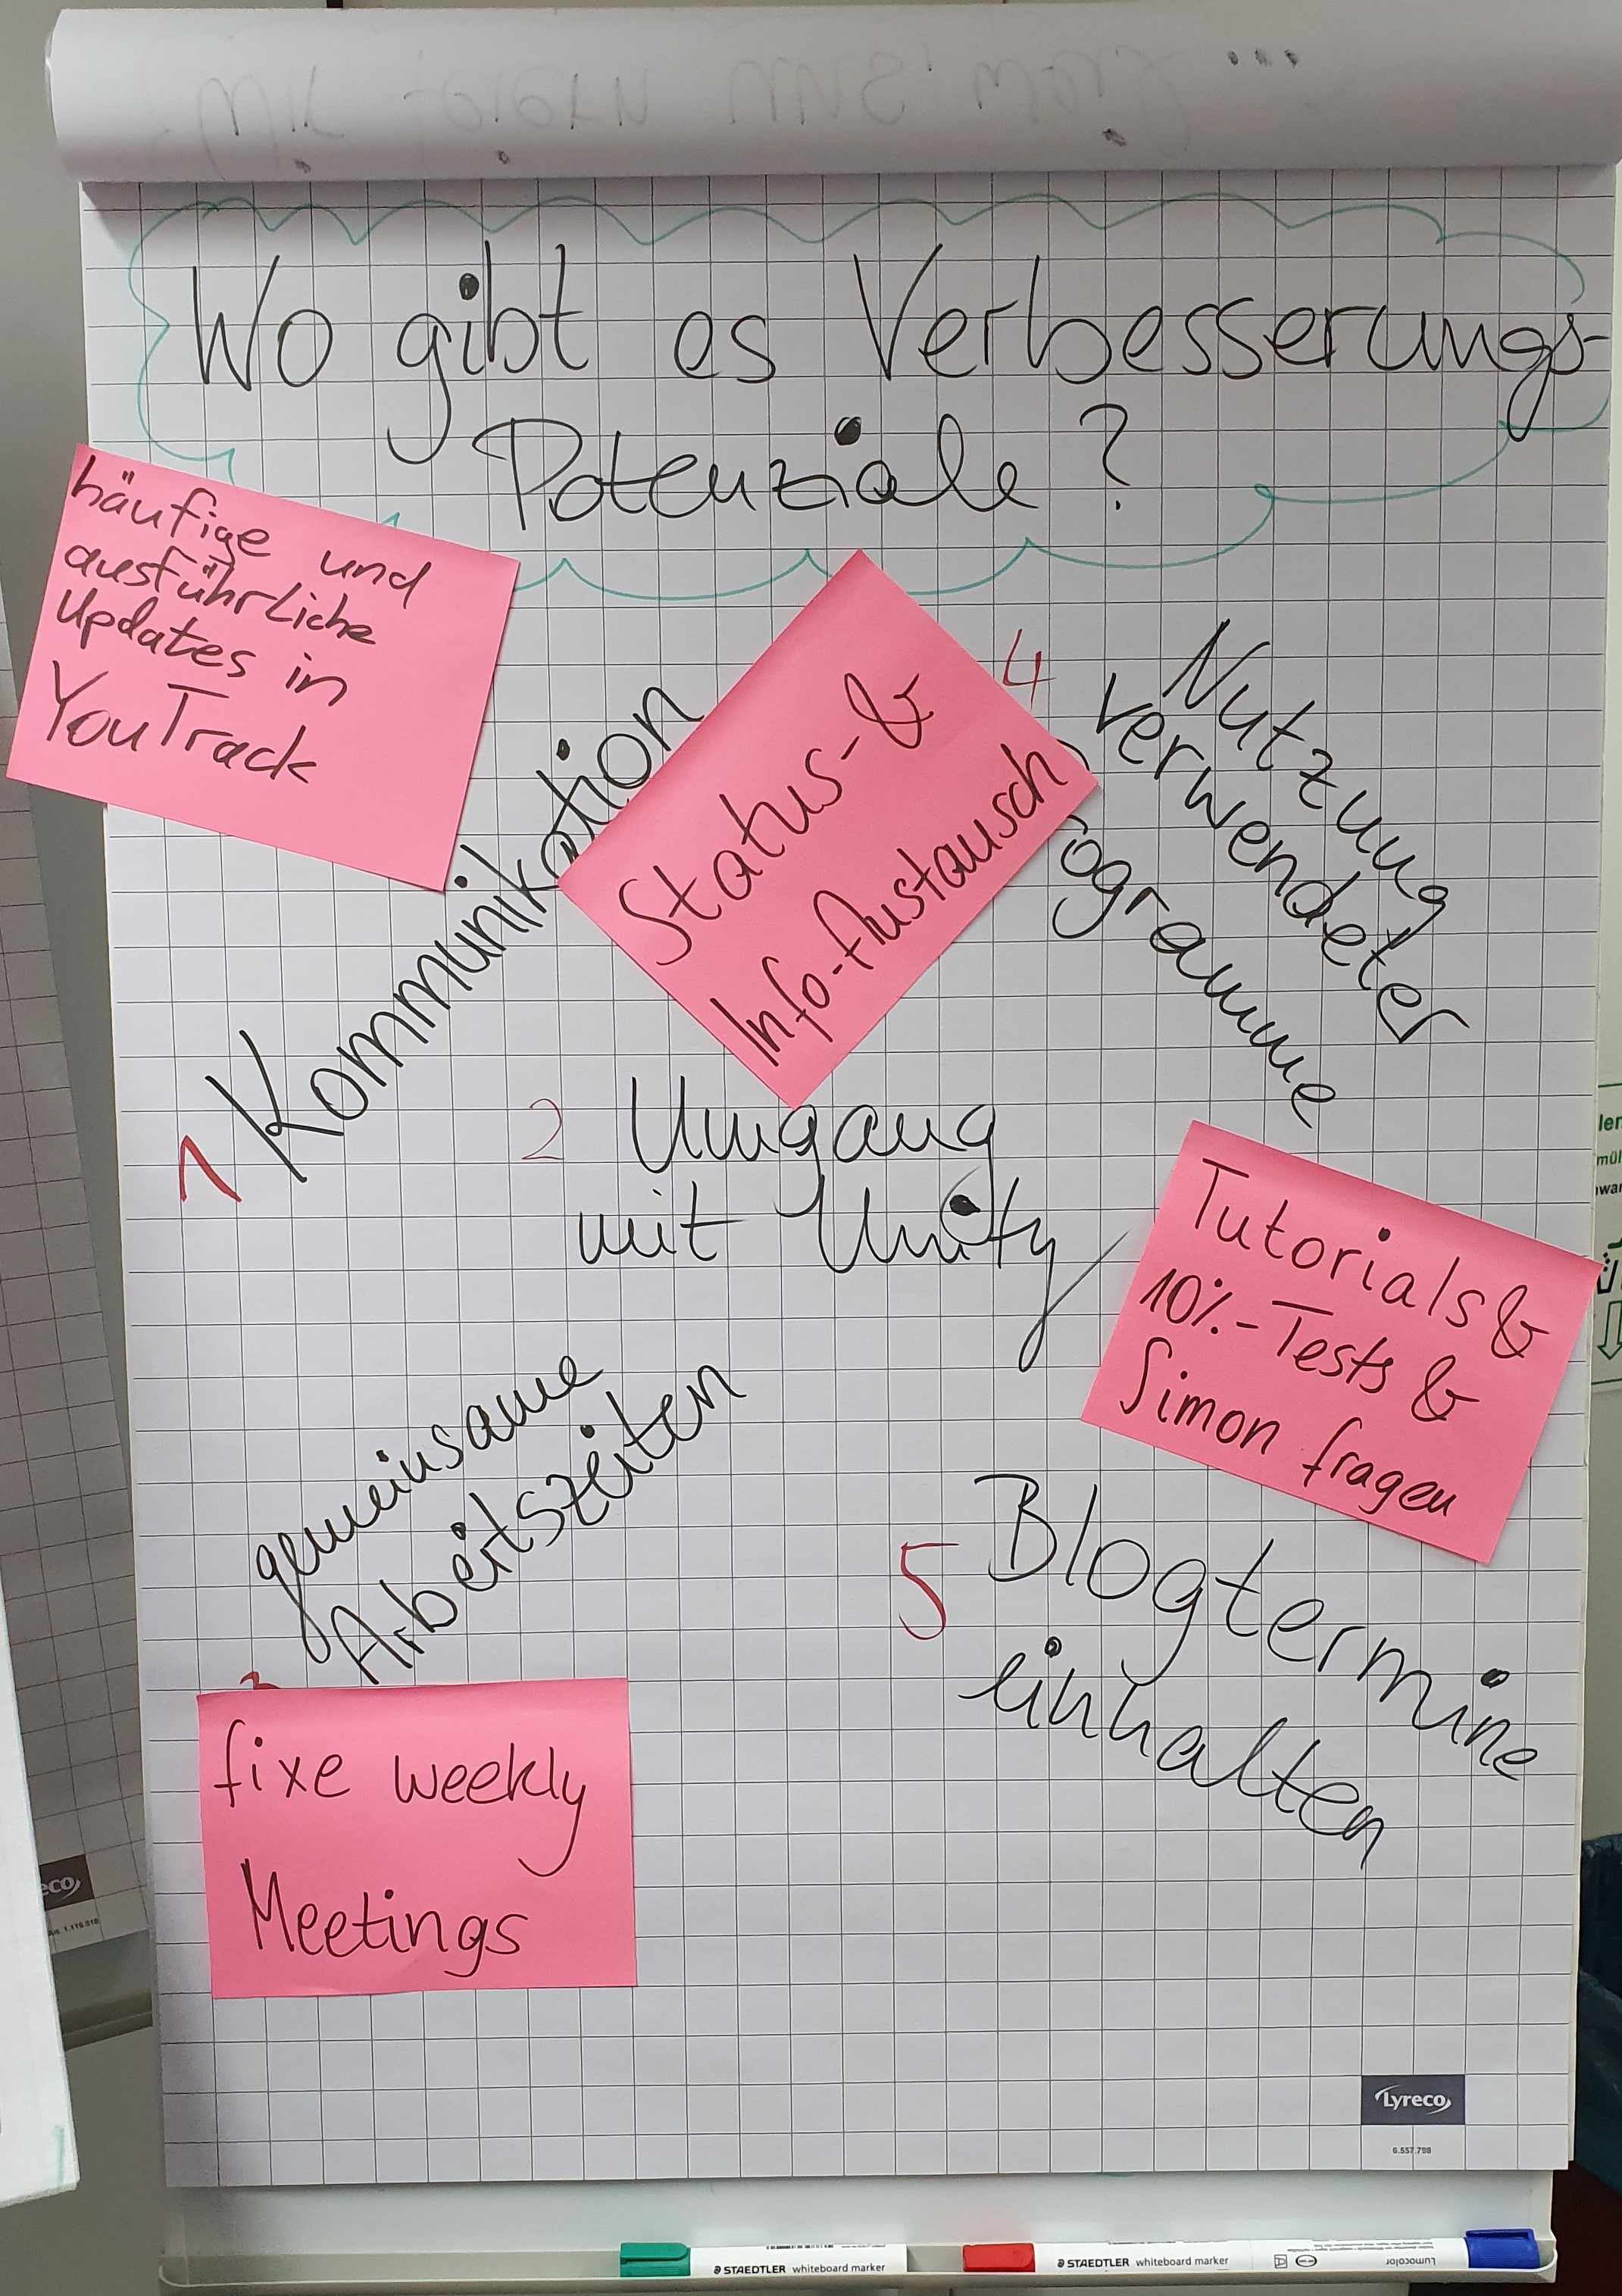 Wir feiern uns, weil ...
Wo gibt es Verbesserungs-
Potenziale?
häufige und
ausführliche
Updates in
YouTrack
1 Kommunikation
Status- &
Info-Austausch
4 Nutzung
verwendeter
rogramme
2 Umgang
mit Unity
Tutorials &
10%-Tests &
Simon fragen
gemeinsame
Arbeitszeiten
3
fixe weekly
Meetings
5 Blogtermine
einhalten
Lyreco
6.557.798
eco
1.116.310
STAEDTLER whiteboard marker
STAEDTLER whiteboard marker
Lumocolor